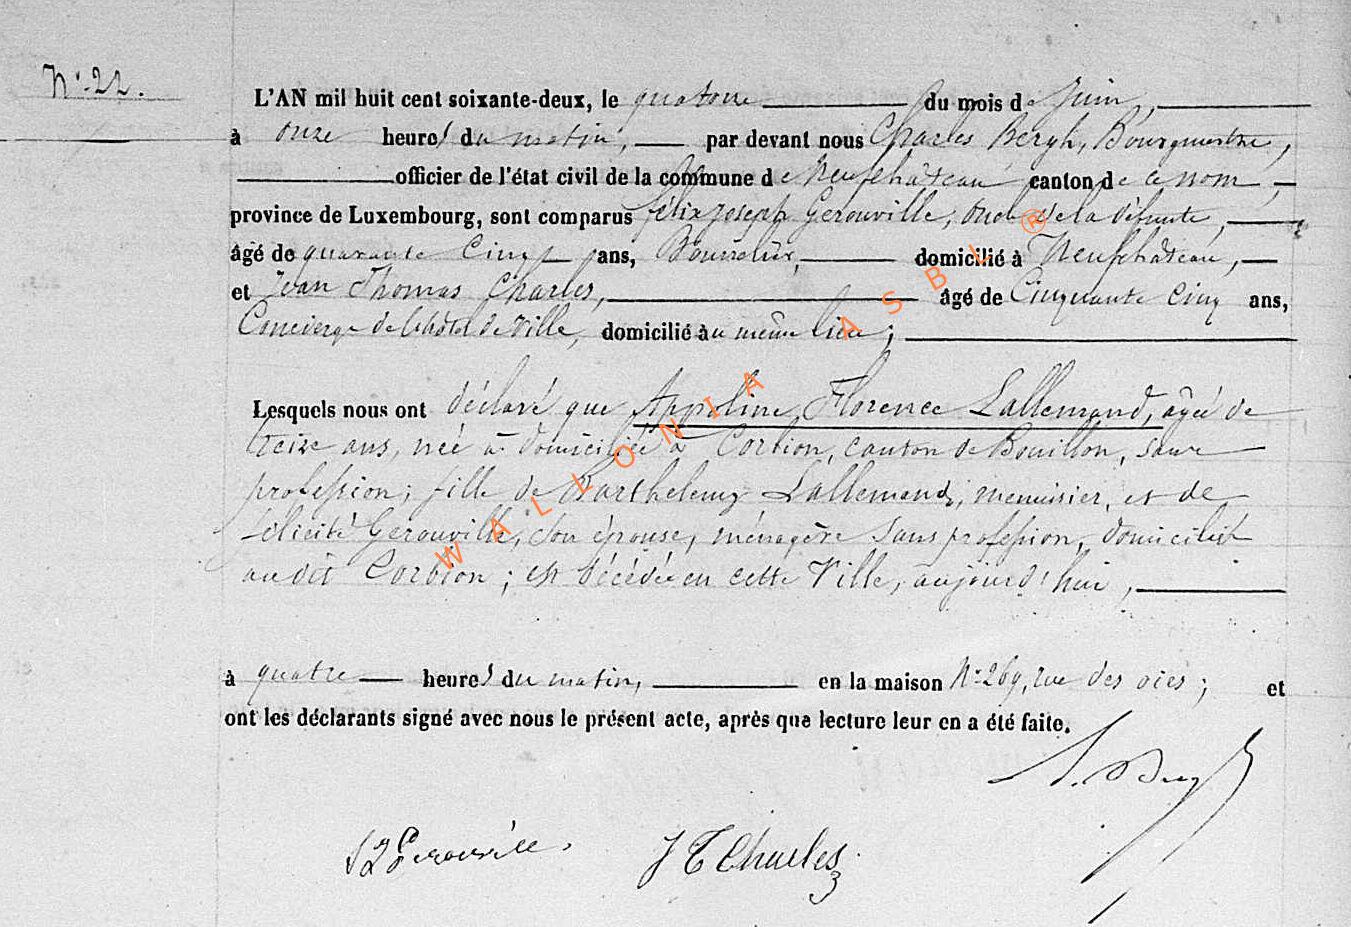 N° 22.
L'AN mil huit cent soixante-deux, le quatorze du mois de Juin,
à onze heures du matin, par devant nous Charles Bergh, Bourgmestre,
officier de l'état civil de la commune de Neufchâteau canton de ce nom,
province de Luxembourg, sont comparus félix joseph Gerouville, oncle de la défunte,
âgé de quarante Cinq ans, Bourrelier, domicilié à Neufchâteau,
et Jean Thomas Charles, âgé de Cinquante Cinq ans,
Concierge de l'hôtel de Ville, domicilié au même lieu;
Lesquels nous ont déclaré que Appoline Florence Lallemand, âgée de
treize ans, née à domiciliée à Corbion, canton de Bouillon, sans
profession; fille de Barthelemy Lallemand, menuisier, et de
félicité Gerouville, son épouse, ménagère sans profession, domiciliés
audit Corbion; est décédée en cette Ville, aujourd'hui,
à quatre heures du matin, en la maison N° 269, rue des oies; et
ont les déclarants signé avec nous le présent acte, après que lecture leur en a été faite.
Gerouville. J T Charles
WALLONIA ASBL ®